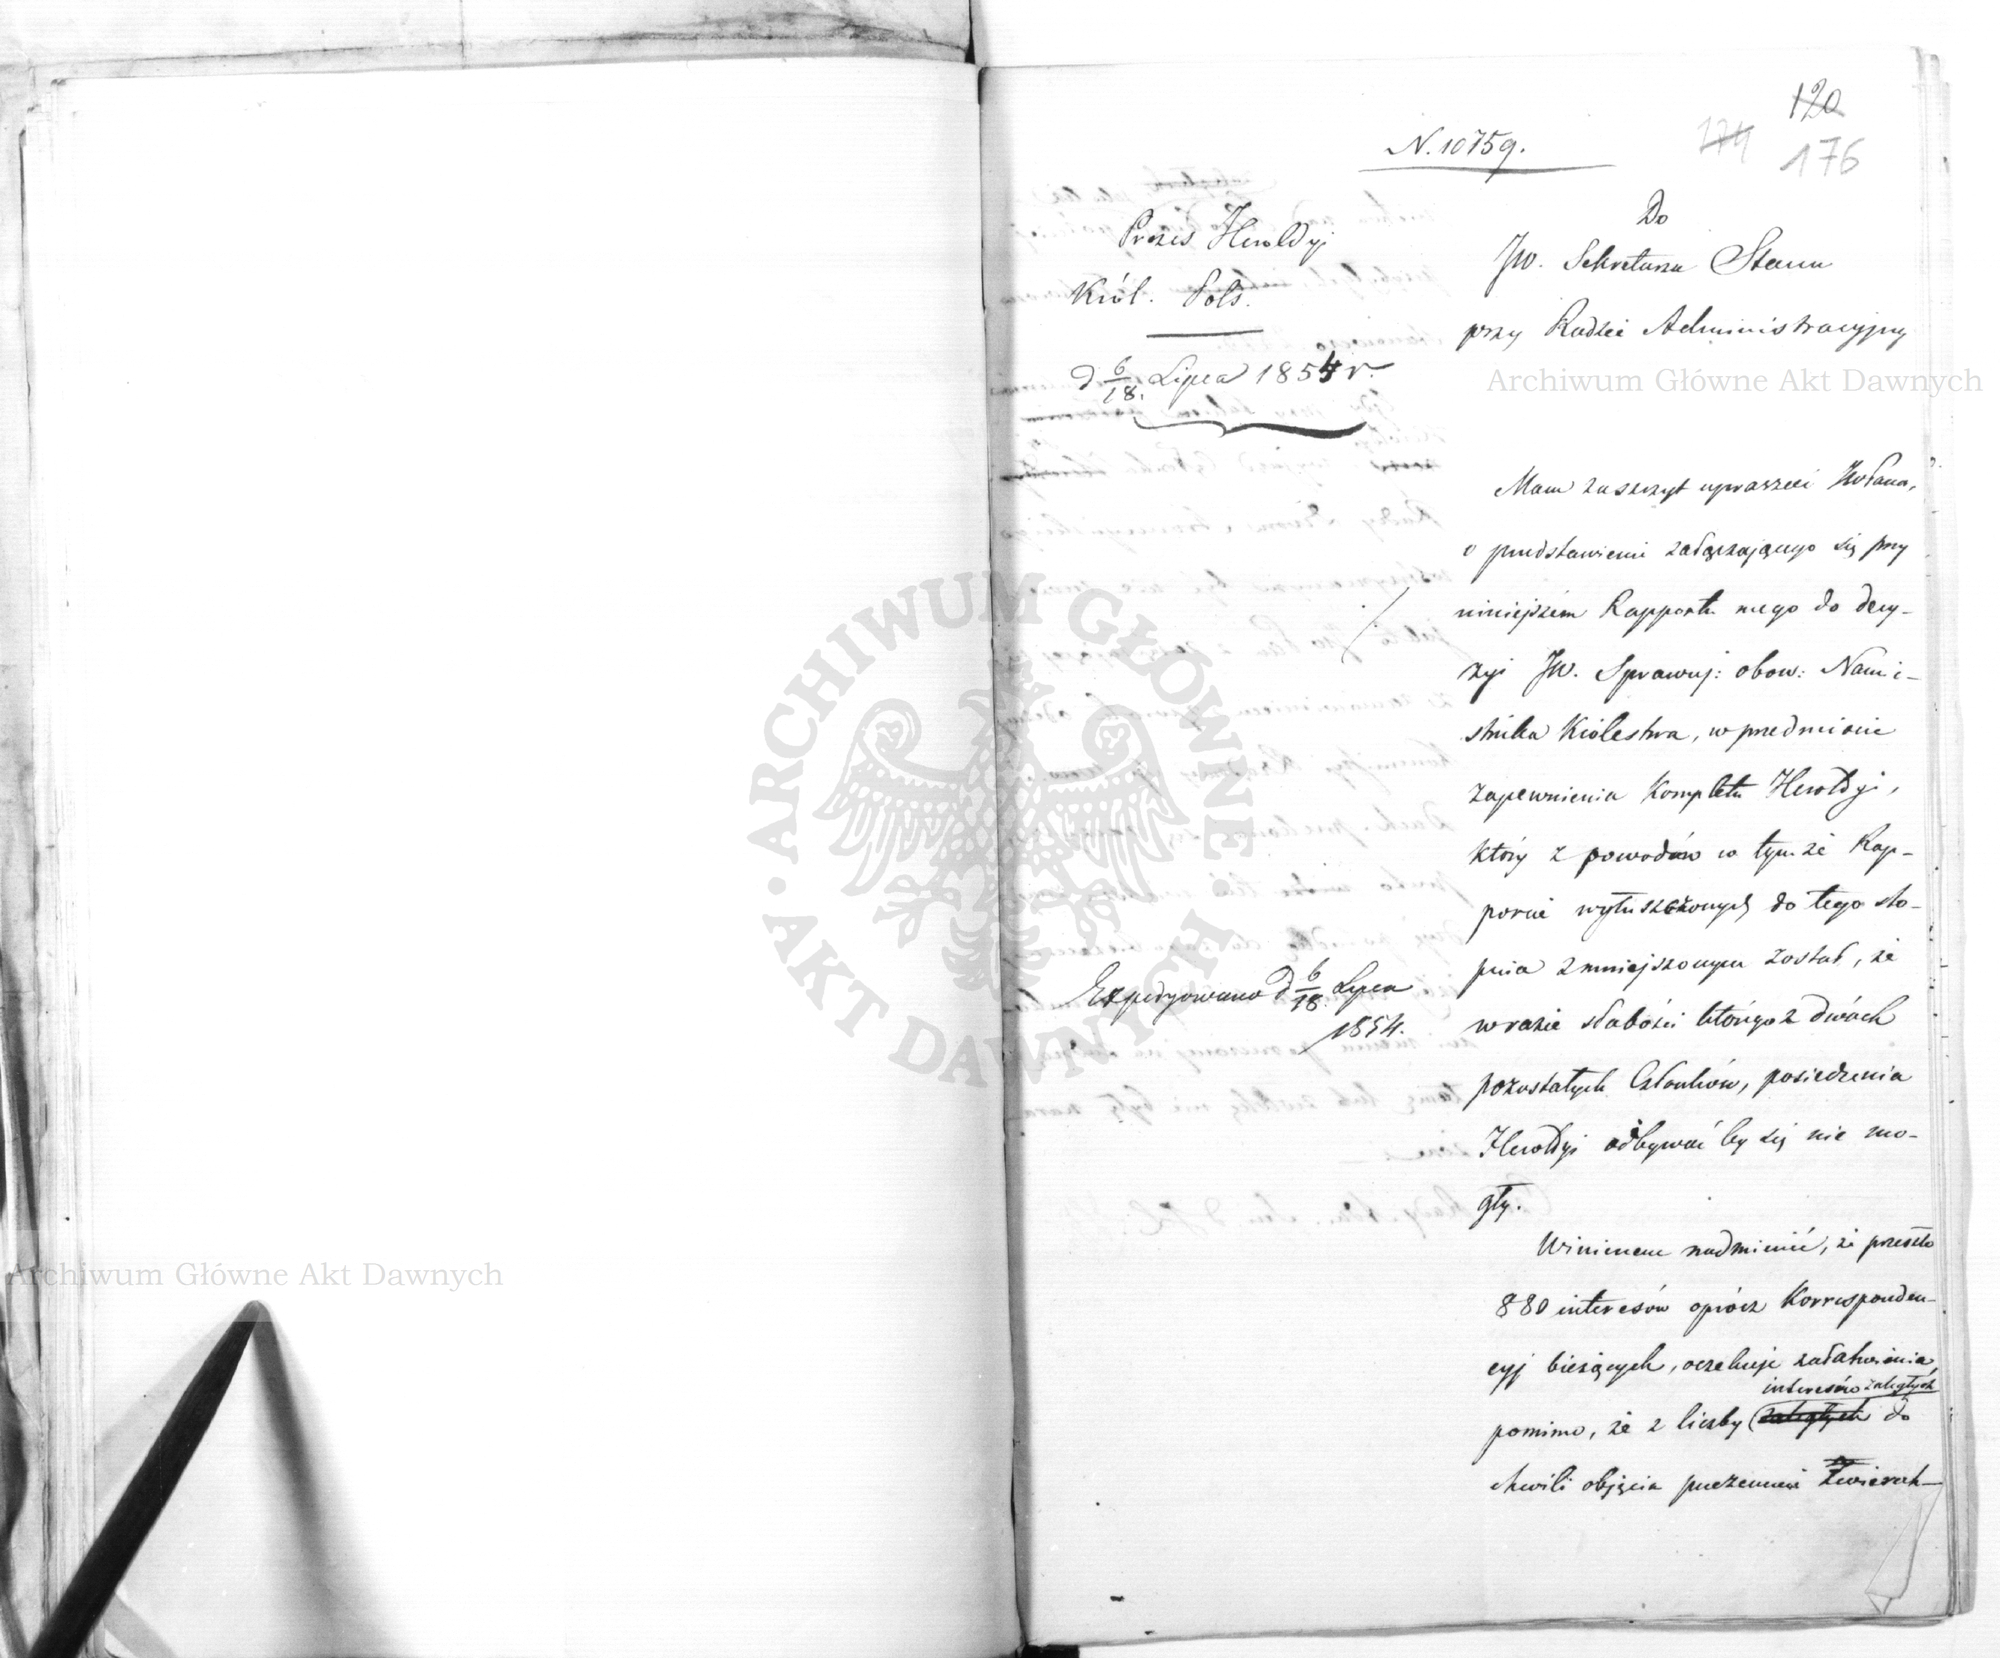 120
174
176
N. 10759.
Prezes Heroldyi
Król. Pols.
d 6/18. Lipca 1854 r.
Expedyowano d 6/18. Lipca
1854.
Do
JW. Sekretarza Stanu
przy Radzie Administracyjnej
Mam zaszczyt upraszać JWPana,
o przedstawienie załączającego się przy
niniejszém Rapportu mego do decy-
zyi JW. Sprawuj: obow: Nami-
stnika Królestwa, w przedmiocie
zapewnienia Kompletu Heroldyi,
który z powodów w tymże Rap-
porcie wyłuszczonych do tego sto-
pnia zmniejszonym został, że
w razie słabości którego z dwóch
pozostałych Członków, posiedzenia
Heroldyi odbywać by się nie mo-
gły.
Winienem nadmienić, że przeszło
880 interesów oprócz Korresponden-
cyj bieżących, oczekuje załatwienia,
interesów zaległych
pomimo, że z liczby zaległych do
chwili objęcia przezemnie Zwierzch-
Archiwum Główne Akt Dawnych
Archiwum Główne Akt Dawnych
ARCHIWUM GŁÓWNE AKT DAWNYCH